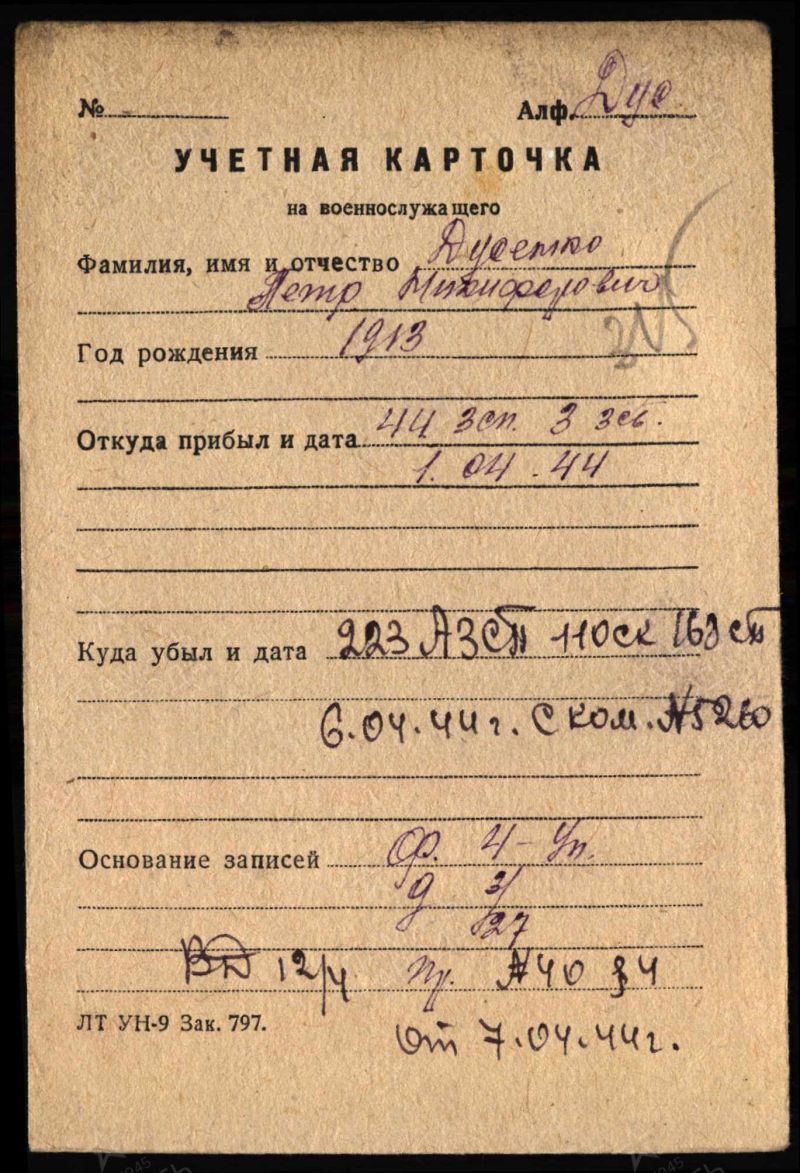 № Алф. Дус
УЧЕТНАЯ КАРТОЧКА
на военнослужащего
Фамилия, имя и отчество Дусенко
Петр Никифорович
Год рождения 1913
Откуда прибыл и дата 44 зсп. 3 зсб.
1.04.44
Куда убыл и дата 223 АЗСП 110 ск 163 сп
6.04.44г. с ком. №5260
Основание записей ф. 4-Уп.
д 3/
27
ВД 12/4 пр. №40 §4
ЛТ УН-9 Зак. 797.
От 7.04.44г.